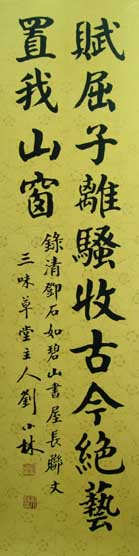 賦屈子離騷收古今絕藝
置我山窗
錄清鄧石如碧山書屋長聯文
三味草堂主人劉小林